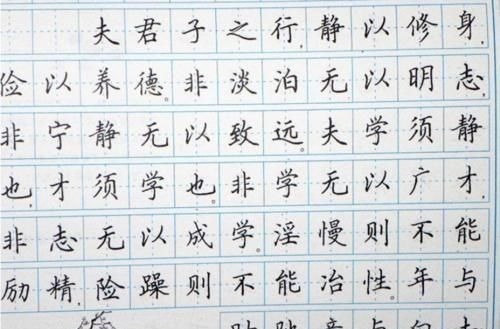 夫君子之行,静以修身,
险以养德。非淡泊无以明志,
非宁静无以致远。夫学须静
也,才须学也。非学无以广才,
非志无以成学。淫慢则不能
励精,险躁则不能冶性。年与